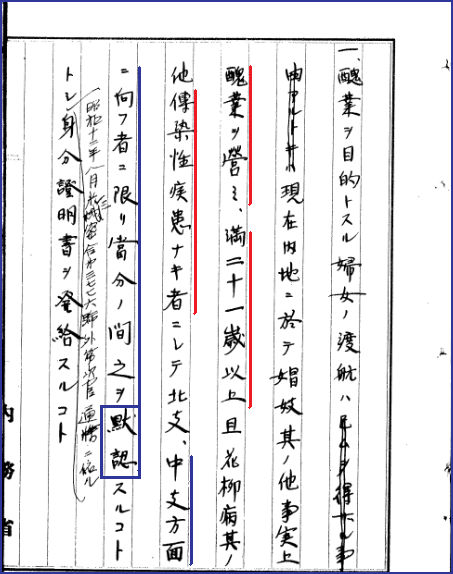 一、醜業ヲ目的トスル婦女ノ渡航ハ
現在内地ニ於テ娼妓其ノ他事実上
醜業ヲ營ミ、満二十一歳以上且花柳病其ノ
他傳染性疾患ナキ者ニシテ北支、中支方面
ニ向フ者ニ限リ當分ノ間之ヲ默認スルコト
昭和十二年八月米三機密合第三七七六號外務次官通牒ニ依ル
トシ身分證明書ヲ発給スルコト
内務省